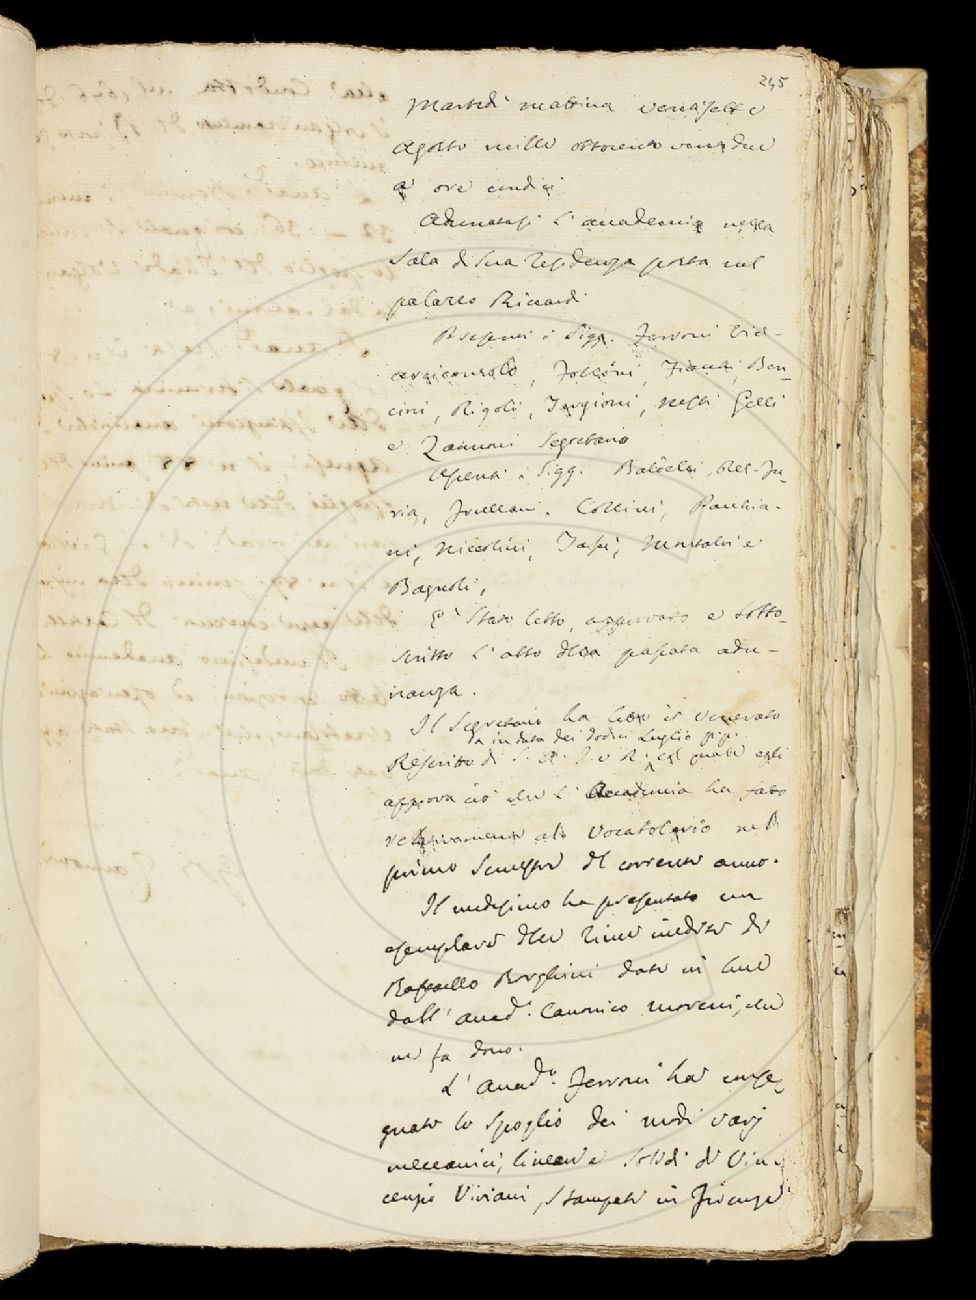 245
Martedì mattina ventisette
Agosto mille ottocento ventidue
a ore undici
Adunatasi l'accademia nella
Sala di sua residenza posta nel
palazzo Riccardi
Presenti i Sigg. Ferroni Vice-
arciconsolo, Follini, Fiacchi, Ben-
cini, Rigoli, Targioni, Nesti Gelli
e Zannoni Segretario
Assenti i Sigg. Baldelli, Del-Fu-
ria, Frullani, Collini, Pacchia-
ni, Niccolini, Tassi, Montalvi e
Bagnoli,
E' stato letto, approvato e sotto-
scritto l'atto della passata adu-
nanza.
Il Segretario ha letto il venerato
in data dei dodici Luglio pp.
Rescritto di S. A. I. e R. col quale egli
approva ciò che l'Accademia ha fatto
relativamente al Vocabolario nel
primo semestre del corrente anno.
Il medesimo ha presentato un
esemplare delle rime inedite di
Raffaello Borghini date in luce
dall'accad.º Canonico Moreni, che
ne fa dono.
L'accad.º Ferroni ha conse-
gnato lo spoglio dei modi varj
meccanici, lineari e solidi di Vin-
cenzio Viviani, stampato in Firenze